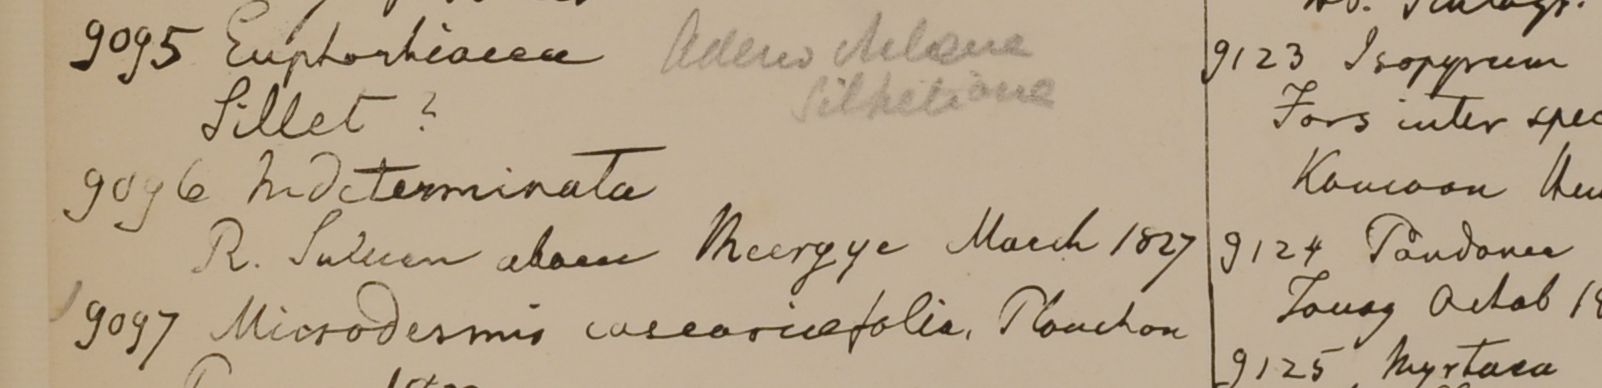 9095 Euphorbiaceae Adeno chlaena
Silhetiana
Sillet ?
9096 Indeterminata
R. Saluen above Meergye March 1827
9097 Microdesmis caseariaefolia, Planchon
9123 Isopyrum
Fors inter spec
Kamaon
9124 Pandanea
Tavoy Octob 18
9125 Myrtacea